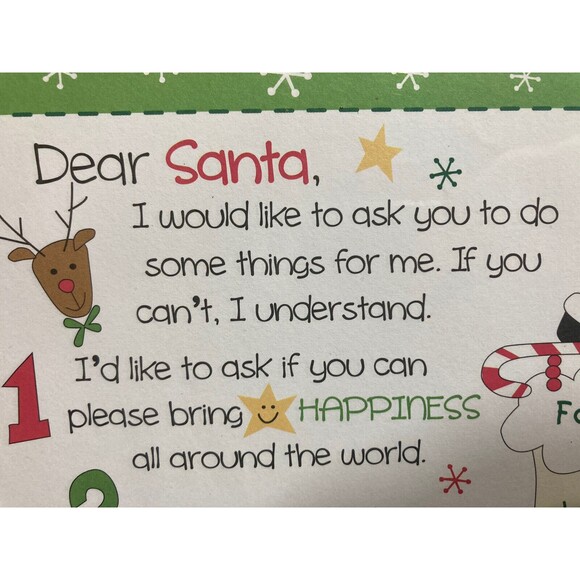 Dear Santa,
I would like to ask you to do
some things for me. If you
can't, I understand.
1 I'd like to ask if you can
please bring HAPPINESS
all around the world.
2